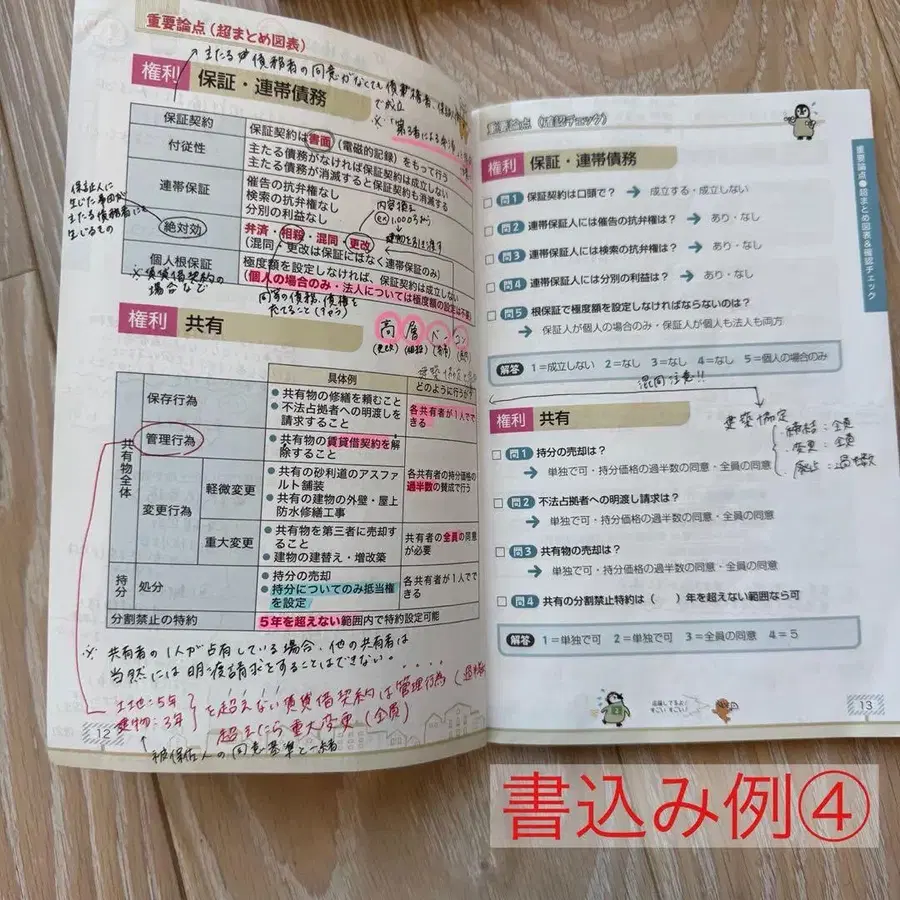 重要論点(超まとめ図表)
主たる債務者の同意がなくても債権者、保証人
で成立
権利 保証・連帯債務
保証契約 保証契約は書面(電磁的記録)をもって行う
付従性 主たる債務がなければ保証契約は成立しない
主たる債務が消滅すると保証契約も消滅する
連帯保証 催告の抗弁権なし
検索の抗弁権なし
分別の利益なし
内容領土
ex)1,000万が
建物を引き渡す
保証人に
生じた事由が
主たる債務者にも
生じるもの
絶対効 弁済・相殺・混同・更改
(混同・更改は保証にはなく連帯保証のみ)
個人根保証 極度額を設定しなければ、保証契約は成立しない
(個人の場合のみ・法人については極度額の設定は不要)
※賃貸借契約の
場合など
権利 共有
高層ベ・コン
(更改)(相殺)
具体例 どのように行うか?
共有物全体
保存行為
● 共有物の修繕を頼むこと
● 不法占拠者への明渡しを
請求すること
各共有者が1人で
できる
管理行為
● 共有物の賃貸借契約を解
除すること
変更行為
軽微変更
● 共有の砂利道のアスファ
ルト舗装
● 共有の建物の外壁・屋上
防水修繕工事
各共有者の持分価格の
過半数の賛成で行う
重大変更
● 共有物を第三者に売却す
ること
● 建物の建替え・増改築
共有者の全員の同意
が必要
持分
処分
● 持分の売却
● 持分についてのみ抵当権
を設定
各共有者が1人でで
きる
分割禁止の特約 5年を超えない範囲内で特約設定可能
※ 共有者の1人が占有している場合、他の共有者は
当然には明渡請求をすることはできない。
土地:5年
建物:3年
を超えない賃貸借契約は管理行為(過半数
超えたら重大変更(全員)
被保佐人の同意基準と一緒
12
重要論点(確認チェック)
権利 保証・連帯債務
□ 問1 保証契約は口頭で? → 成立する・成立しない
□ 問2 連帯保証人には催告の抗弁権は? → あり・なし
□ 問3 連帯保証人には検索の抗弁権は? → あり・なし
□ 問4 連帯保証人には分別の利益は? → あり・なし
□ 問5 根保証で極度額を設定しなければならないのは?
→ 保証人が個人の場合のみ・保証人が個人も法人も両方
解答 1=成立しない 2=なし 3=なし 4=なし 5=個人の場合のみ
混同注意!!
権利 共有
建築協定
締結:全員
変更:全員
廃止:過半数
□ 問1 持分の売却は?
→ 単独で可・持分価格の過半数の同意・全員の同意
□ 問2 不法占拠者への明渡し請求は?
→ 単独で可・持分価格の過半数の同意・全員の同意
□ 問3 共有物の売却は?
→ 単独で可・持分価格の過半数の同意・全員の同意
□ 問4 共有の分割禁止特約は( )年を超えない範囲なら可
解答 1=単独で可 2=単独で可 3=全員の同意 4=5
重要論点●超まとめ図表&確認チェック
13
書込み例④